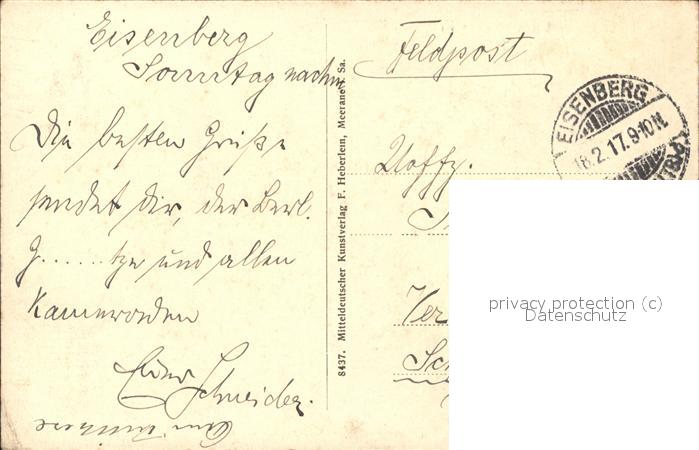 Eisenberg
Sonntag nachm
Die besten Grüße
sendet dir, der Berl.
G......tze und allen
Kameraden
Schneider.
8437. Mitteldeutscher Kunstverlag F. Heberlein, Meerane i. Sa.
Feldpost
EISENBERG
18.2.17.9-10N.
Uoffz.
Ver
Sch
privacy protection (c)
Datenschutz